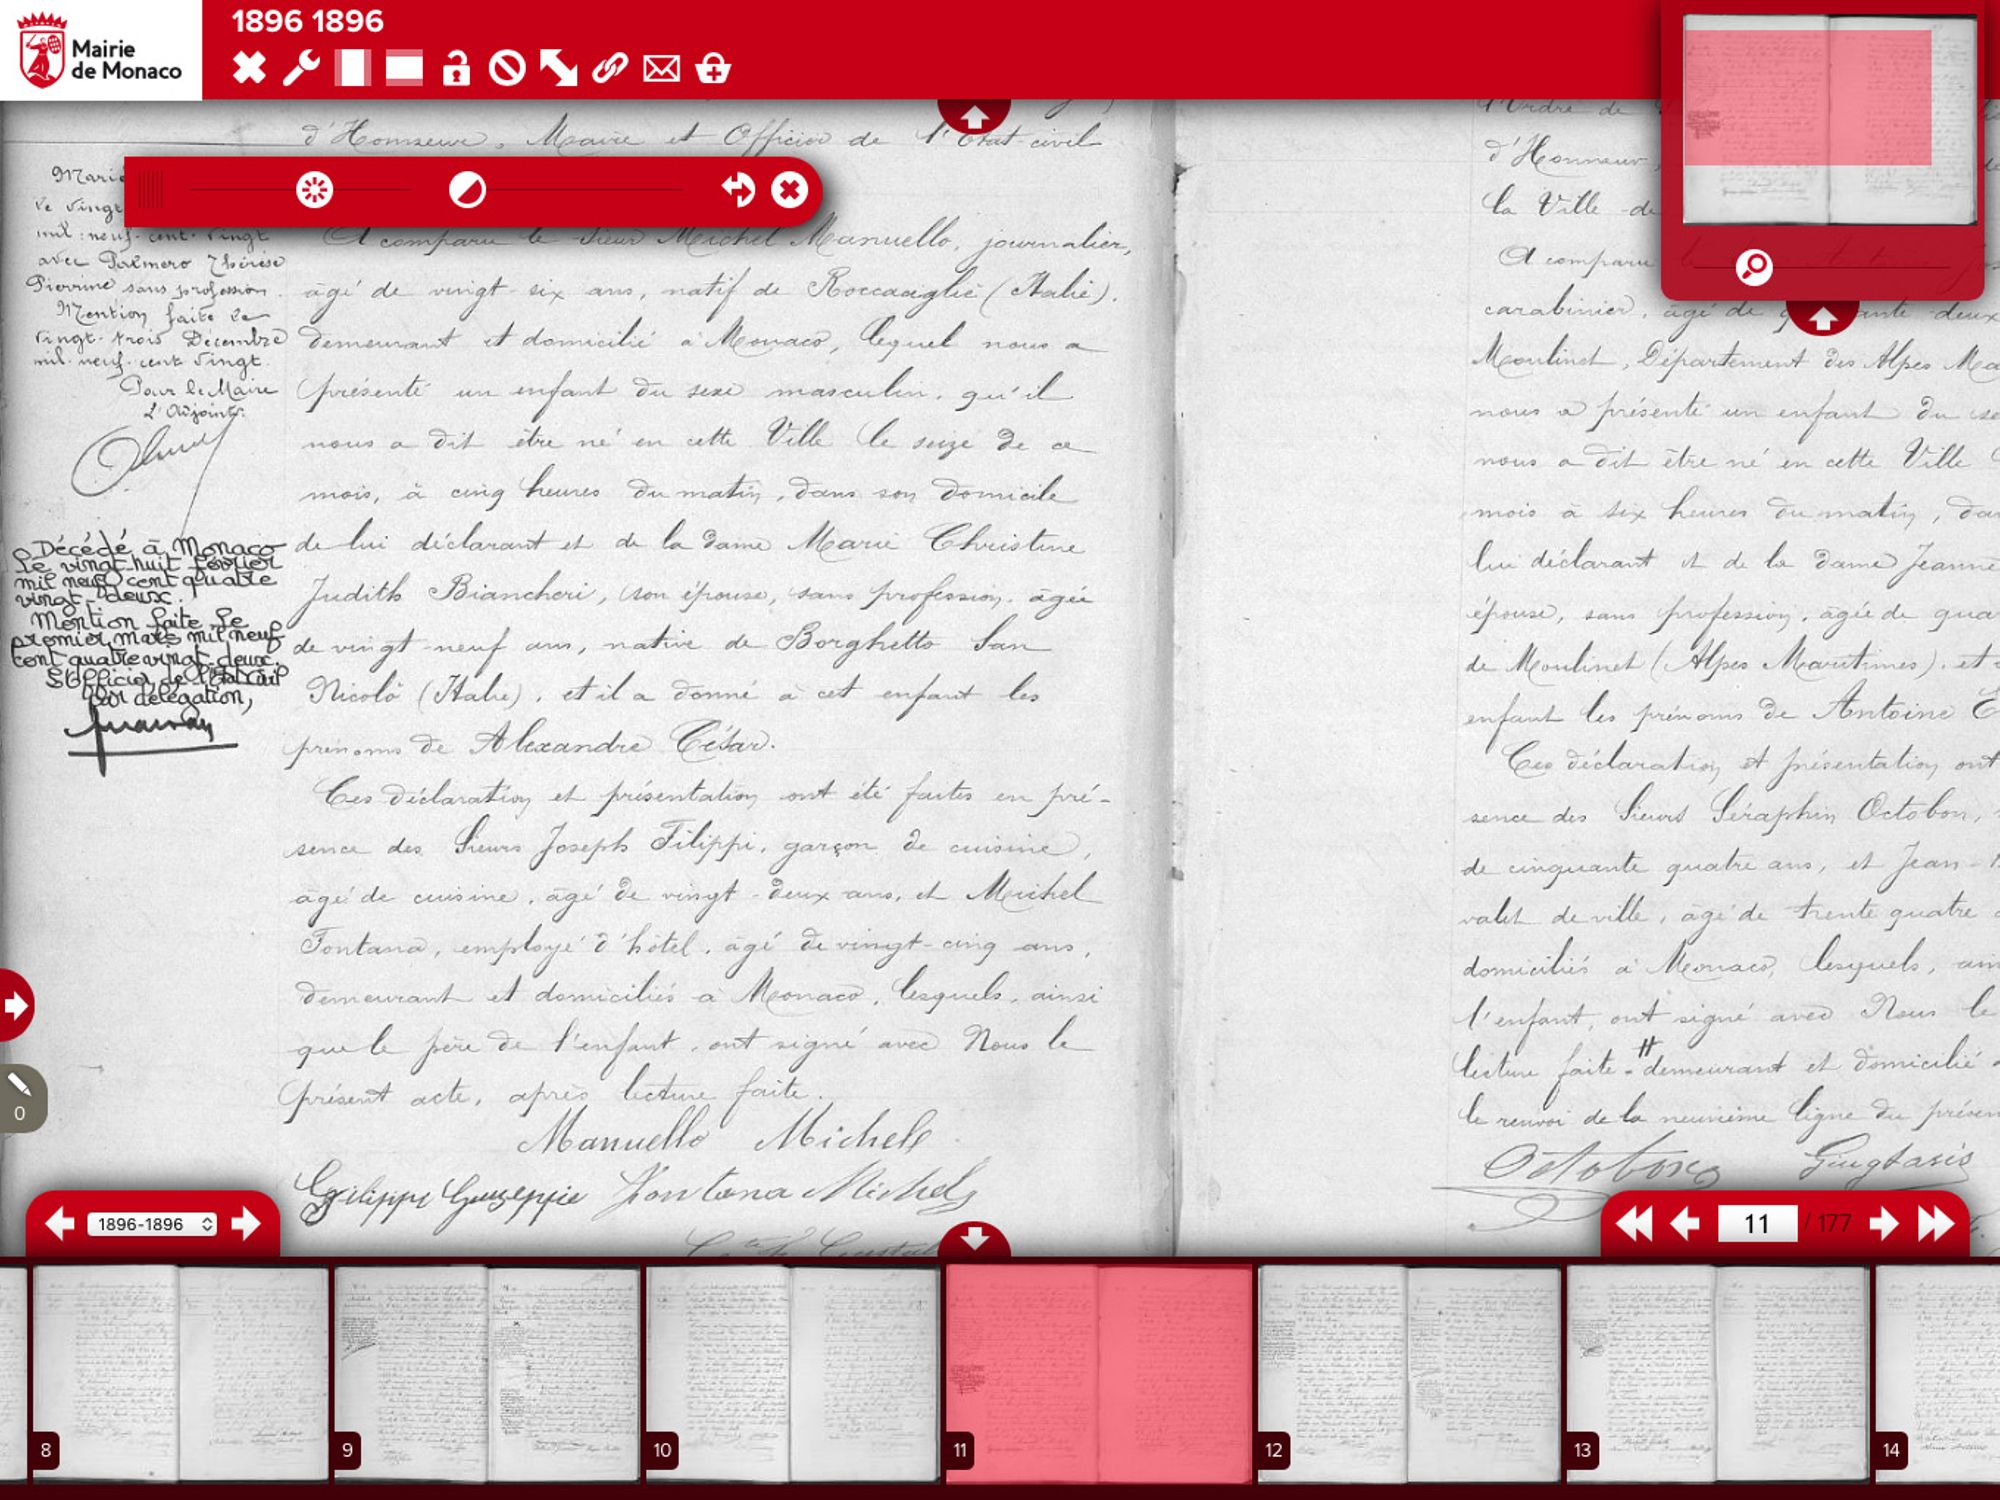 Mairie
de Monaco
1896 1896
d'Honneur, Maire et Officier de l'Etat-civil
Marié
le vingt
mil-neuf-cent-vingt
avec Palmero Thérèse
Pierrine sans profession.
Mention faite le
vingt-trois Décembre
mil-neuf-cent vingt.
Pour le Maire
L'Adjoint:
Décédé à Monaco
le vingt-huit février
mil neuf cent quatre
vingt-deux.
Mention faite le
premier mars mil neuf
cent quatre vingt-deux.
L'Officier de l'Etat Civil
par délégation,
A comparu le Sieur Michel Manuello, journalier,
âgé de vingt-six ans, natif de Roccaaglié (Italie).
demeurant et domicilié à Monaco, lequel nous a
présenté un enfant du sexe masculin, qu'il
nous a dit être né en cette Ville le seize de ce
mois, à cinq heures du matin, dans son domicile
de lui déclarant et de la dame Marie Christine
Judith Biancheri, son épouse, sans profession, âgée
de vingt-neuf ans, native de Borghetto San
Nicolò (Italie), et il a donné à cet enfant les
prénoms de Alexandre César.
Ces déclaration et présentation ont été faites en pré-
sence des Sieurs Joseph Filippi, garçon de cuisine,
âgé de cuisine, âgé de vingt-deux ans, et Michel
Fontana, employé d'hôtel, âgé de vingt-cinq ans,
demeurant et domiciliés à Monaco, lesquels, ainsi
que le père de l'enfant, ont signé avec Nous le
présent acte, après lecture faite.
Manuello Michele
Filippi Giuseppie Fontana Michele
l'Ordre de
d'Honneur,
la Ville de
A comparu
carabinier, âgé de deux
Moulinet, Département des Alpes Ma
nous a présenté un enfant du se
nous a dit être né en cette Ville
mois à six heures du matin, da
lui déclarant et de la dame Jeanne
épouse, sans profession, âgée de qua
de Moulinet (Alpes Maritimes), et
enfant les prénoms de Antoine E
Ces déclaration et présentation ont
sence des Sieurs Séraphin Octobon,
de cinquante quatre ans, et Jean-
valet de ville, âgé de trente quatre
domiciliés à Monaco, lesquels, ain
l'enfant, ont signé avec Nous le
lecture faite. demeurant et domicilié
le renvoi de la neuvième ligne du présen
Octobon
1896-1896
11 / 177
0
8
9
10
11
12
13
14